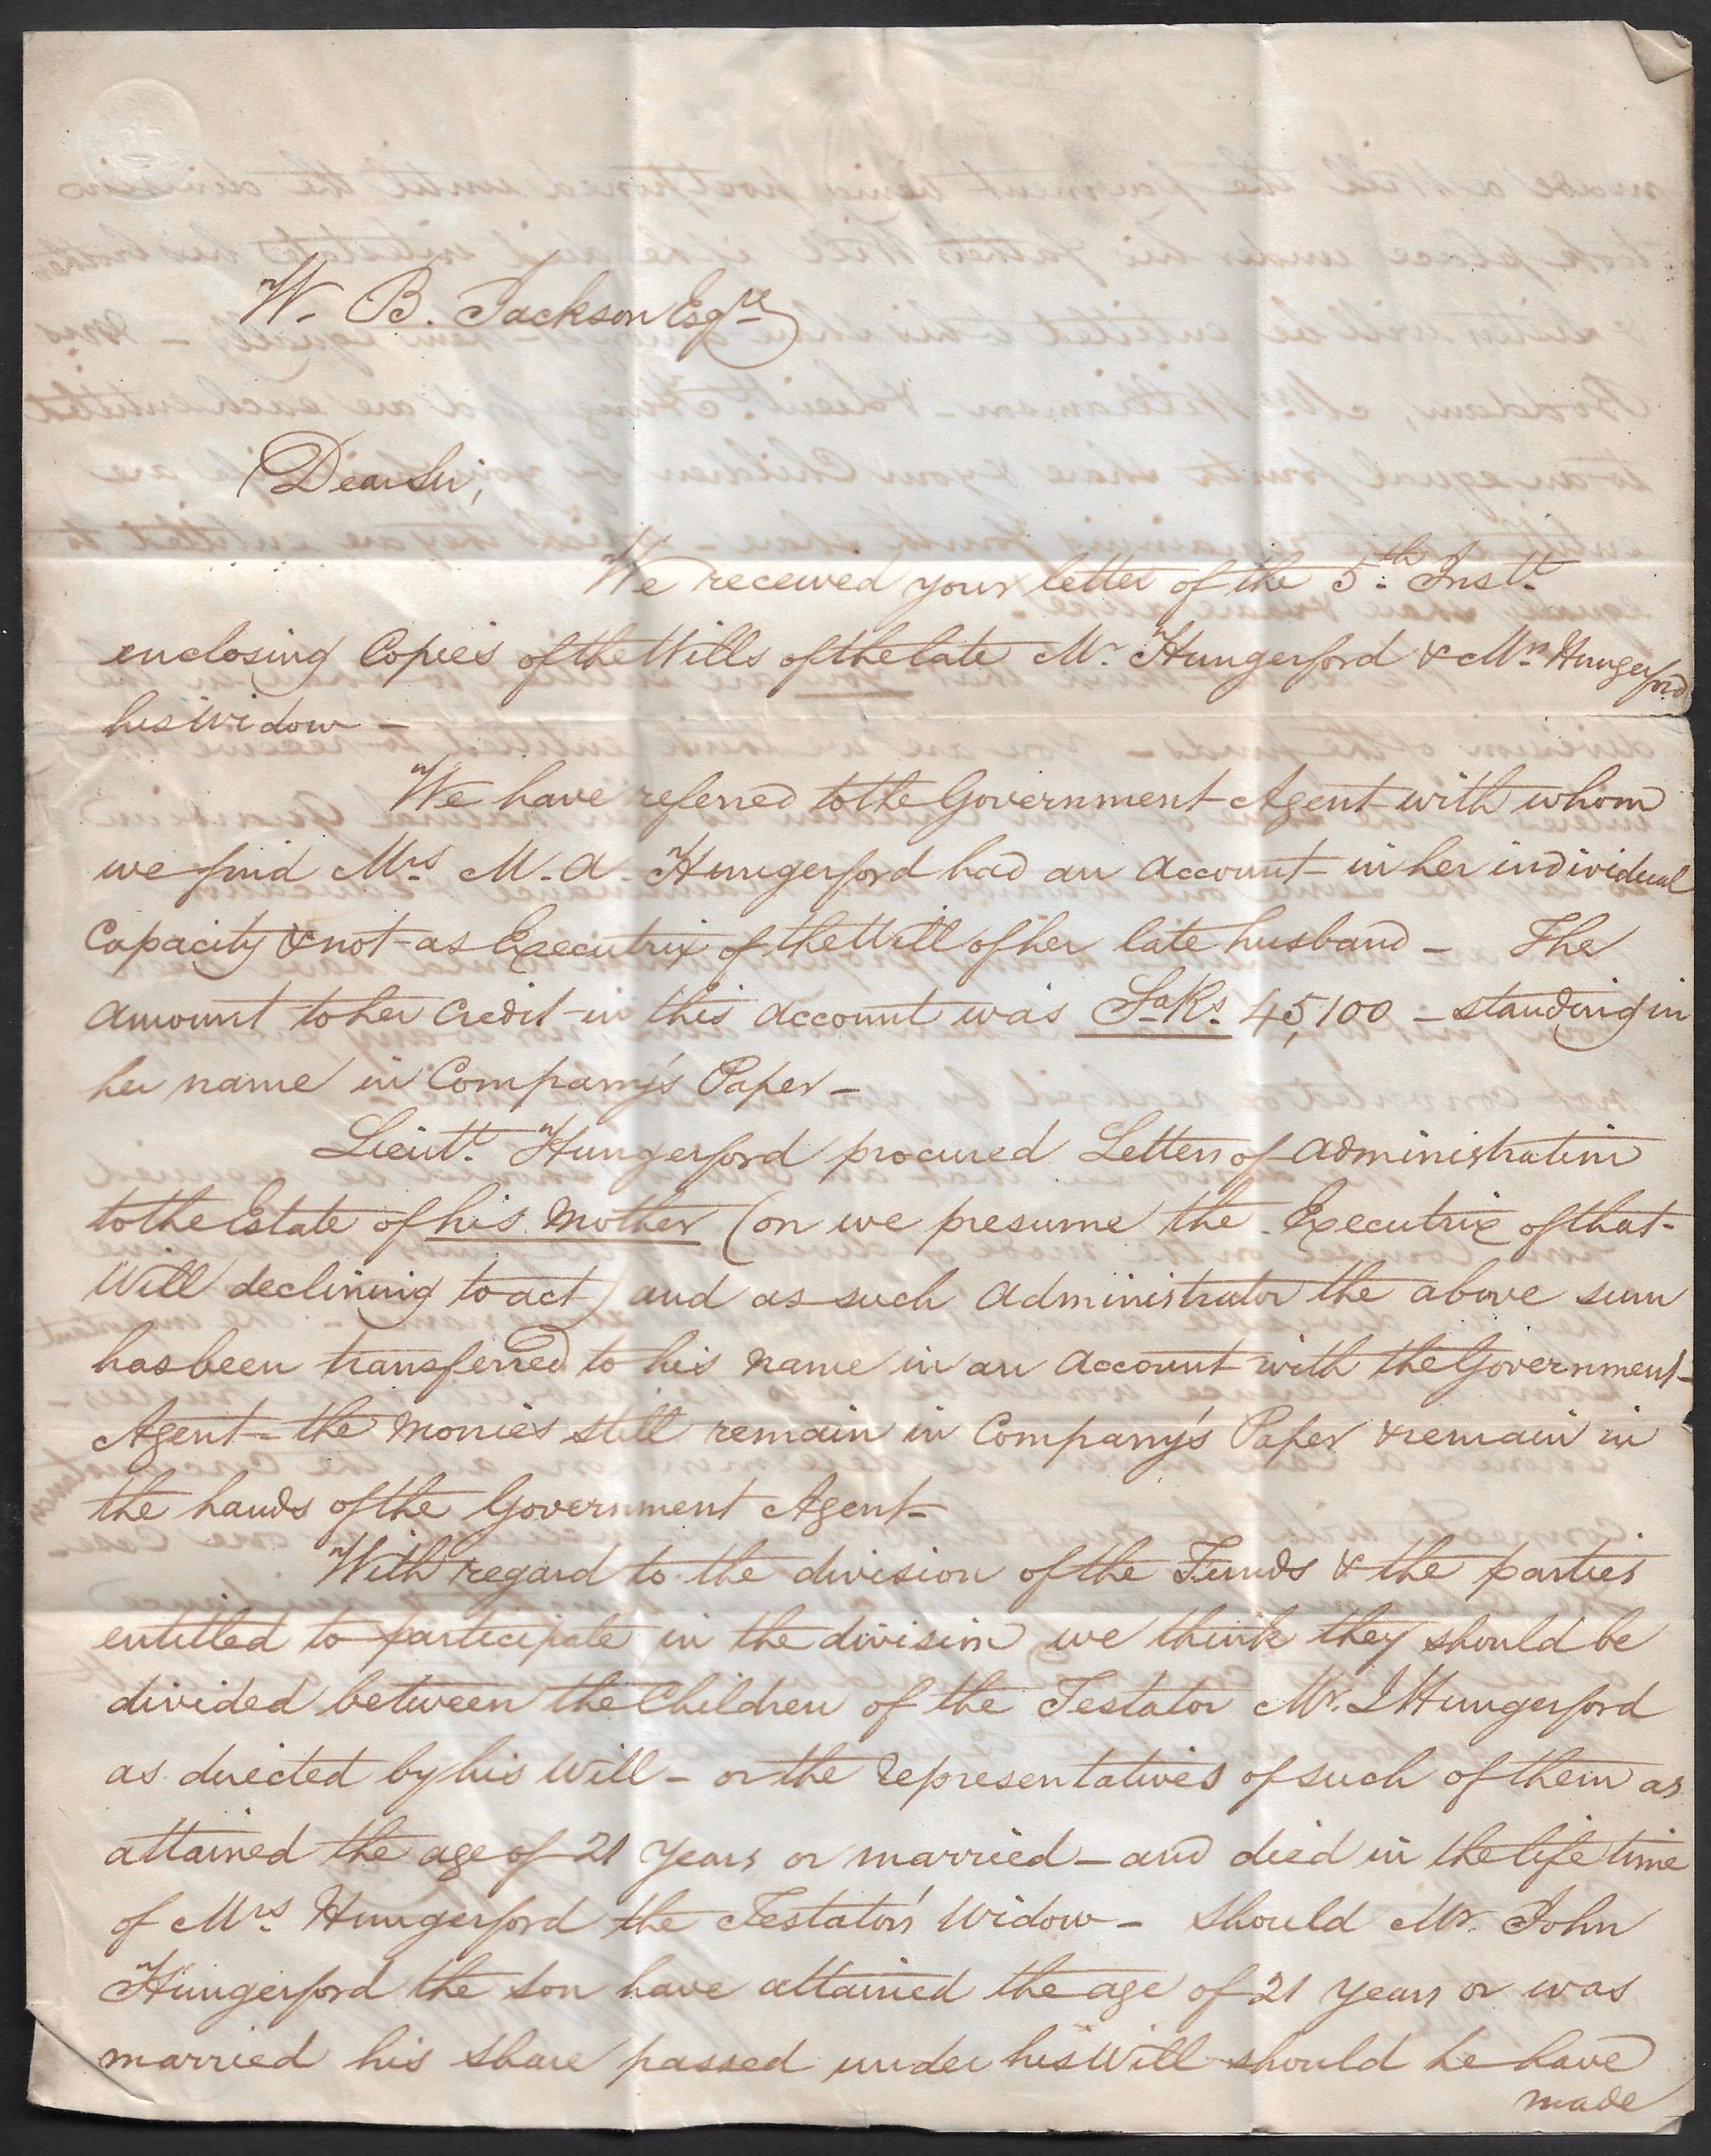 W. B. Jackson Esqre
Dear Sir,
We received your letter of the 5th Instt.
enclosing Copies of the Wills of the late Mr. Hungerford & Mrs Hungerford
his Widow –
We have referred to the Government Agent with whom
we find Mrs M. A. Hungerford had an Account in her individual
Capacity & not as Executrix of the Will of her late husband – The
amount to her Credit in this Account was Sa Rs. 45,100 – standing in
her name in Company's Paper –
Lieutt. Hungerford procured Letters of Administration
to the Estate of his Mother (on we presume the Executrix of that
Will declining to act) and as such Administrator the above sum
has been transferred to his name in an Account with the Government
Agent – the Monies still remain in Company's Paper & remain in
the hands of the Government Agent –
With regard to the division of the Funds & the parties
entitled to participate in the division we think they should be
divided between the Children of the Testator Mr. J Hungerford
as directed by his Will – or the representatives of such of them as
attained the age of 21 Years or married – and died in the lifetime
of Mrs Hungerford the Testator's Widow – Should Mr. John
Hungerford the Son have attained the age of 21 Years or was
married his Share passed under his Will should he have
made